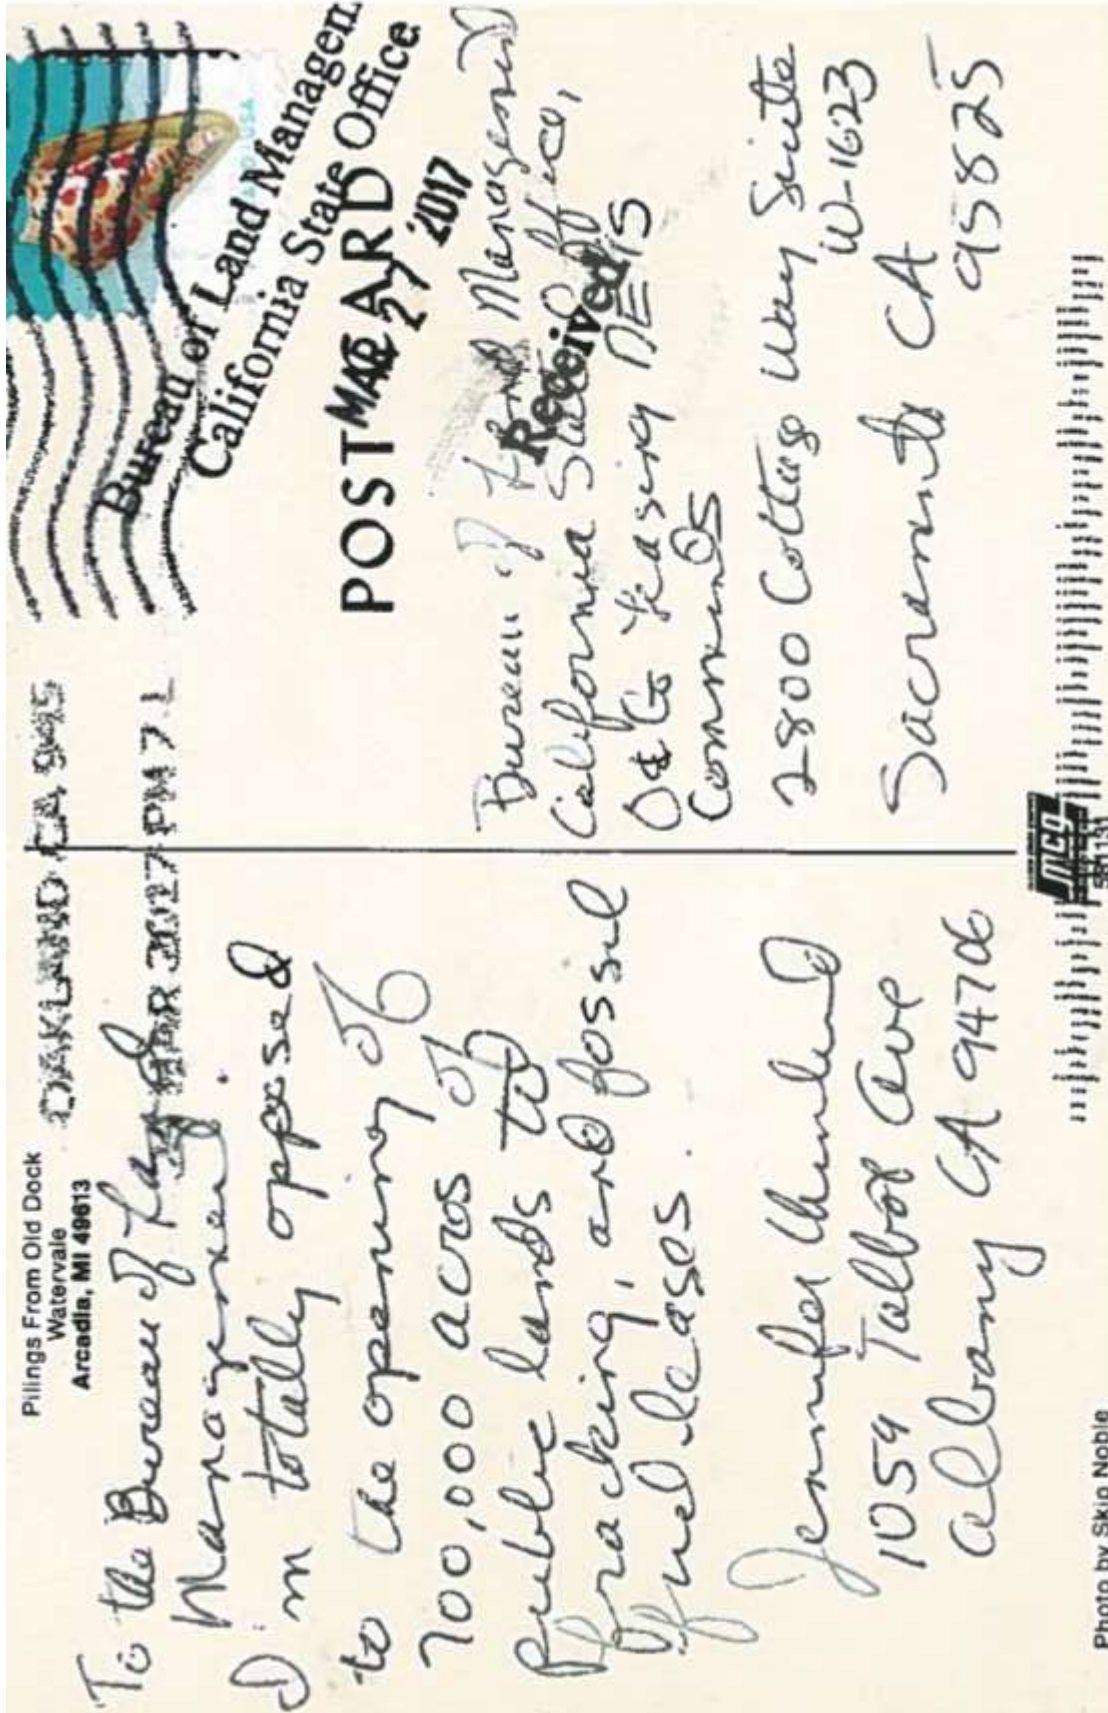 Pilings From Old Dock
Watervale
Arcadia, MI 49613
OAKLAND CA 945
MAR 2017 PM 7 L
To the Bureau of Land
Management.
I'm totally opposed
to the opening of
700,000 acros of
public lands to
fracking, and fossil
fuel leases.
Jennifer
1059 Talbot Ave
Albany CA 94706
Photo by Skip Noble
USA
Bureau of Land Managem
California State Office
POSTCARD
MAR 27 2017
Received
Bureau of Land Management
California State Office,
O & G Leasing DEIS
Comments
2800 Cottage Way Suite
W-1623
Sacramento CA
95825